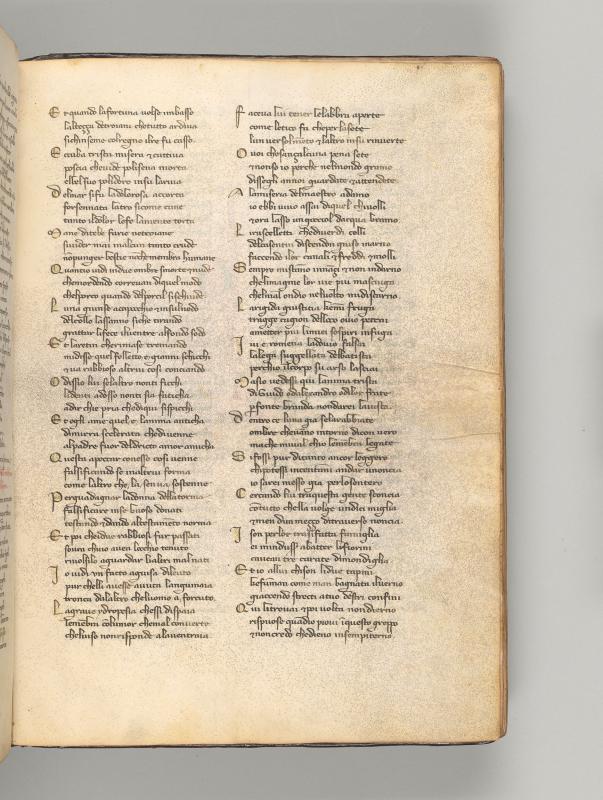 E t quando la fortuna volse inbasso
lalteçça de troiani che tutto ardiva
si chinseme col regno il re fu casso
E ccuba trista misera & cattiva
poscia che vide polisena morta
& del suo polidoro in su la riva
D el mar si fu la dolorosa accorta
forsennata latro si come cane
tanto il dolor le fe la mente torta
M a ne di tebe furie ne troiane
si vider mai in alcun tanto crude
non punger bestie nonche membra humane
Q uanto vidi in due ombre smorte & nude
che mordendo correvan di quel modo
chel porco quando del porcil si schiude
L una giunse a capocchio & in sul nodo
del collo lassanno si che tirando
grattar li fece il ventre al fondo sodo
E t laretin che rimase tremando
mi disse quel folletto e gianni schicchi
& va rabbioso altrui cosi conciando
O dissio lui se laltro non ti ficchi
li denti adosso non ti sia fatica
a dir chi e pria che di qui si spicchi
E t egli ame quel e lanima anticha
di mirra scelerata che divenne
al padre fuor del dricto amor amicha
Q uesta a peccar conesso cosi venne
falsificando se in altrui forma
come laltro che la sen va sostenne
P er guadagnar la donna della torma
falsificare in se buoso donati
testando & dando al testamento norma
E t poi che i due rabbiosi fur passati
sovra chui avea locchio tenuto
rivolsilo a guardar li altri mal nati
I o vidi un facto a guisa di leuto
pur chelli avesse avuta languinaia
tronca dalaltro che luomo a forcuto
L a grave ydropesia che ssi dispaia
le menbra col umor che mal converte
chel viso non risponde a la ventraia
F aceva lui tener le labbra aperte
come letico fa che per la sete
lun verso l mento & laltro in su rinverte
O voi che sanç alcuna pena sete
& non so io perche nel mondo gramo
dissegli a noi guardate & attendete
A la miseria del maestro adamo
io ebbi vivo assai di quel chi volli
& ora lasso un gocciol dacqua bramo
L i ruscelletti che di verdi colli
del casentin discendon giuso in arno
faccendo i lor canali & freddi & molli
S empre mi stanno innançi & non indarno
che limagine lor vie piu masciuga
chel mal ondio nel volto mi discarno
L a rigida giustitia che mi fruga
tragge cagion del loco ov io peccai
a metter piu li miei sospiri in fuga
I vi e romena la dov io falsai
la lega suggellata del batista
perchio il corpo su arso lasciai
M a sio vedessi qui lanima trista
di Guido o dalexandro o di lor frate
per fonte branda non darei la vista
D entro ce luna gia se larabbiate
ombre che vanno intorno dicon vero
ma che mi val chio le menbra legate
S i fossi pur di tanto ancor leggero
chi potessi in cent anni andar un oncia
io sarei messo gia per lo sentero
C ercando lui tra questa gente sconcia
con tutto chella volge undici miglia
& men dun meçço di traverso non cia
I son per lor tra si fatta famiglia
ei mindusser a batter li fiorini
chavean tre carate di mondiglia
E t io a llui chi son li due tapini
che fuman come man bagnate il verno
giacendo strecti a tuo destri confini
Q ui li trovai & poi volta non dierno
rispuose quandio piovi in questo greppo
& non credo che dieno in sempiterno